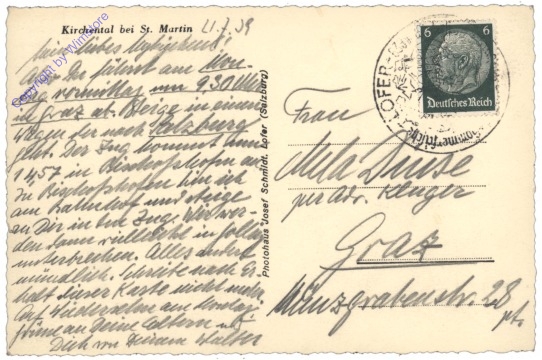 Kirchental bei St. Martin
21.7.39
Mein liebes
Also Du fährst am Mon-
tag vormittag um 9.30 Uhr
ab. Steige in einen
Wagen der nach Salzburg
geht. Der Zug kommt um
14.57 in Bischofshofen an
In Bischofshofen bin ich
am Bahnhof und steige
zu Dir in den Zug. Wir wer-
den dann vielleicht in Golling
unterbrechen. Alles andere
mündlich. Schreibe nach Er-
halt dieser Karte nicht mehr.
Auf Wiedersehen am Montag
Grüsse an Deine Eltern und
Dich von Deinem Walter
Photohaus Josef Schmidt, Lofer (Salzburg)
6 6
Deutsches Reich
LOFER
Sommerfrische
Frau
per Adr.
Graz
Münzgrabenstr. 28
Copyright by Winstore